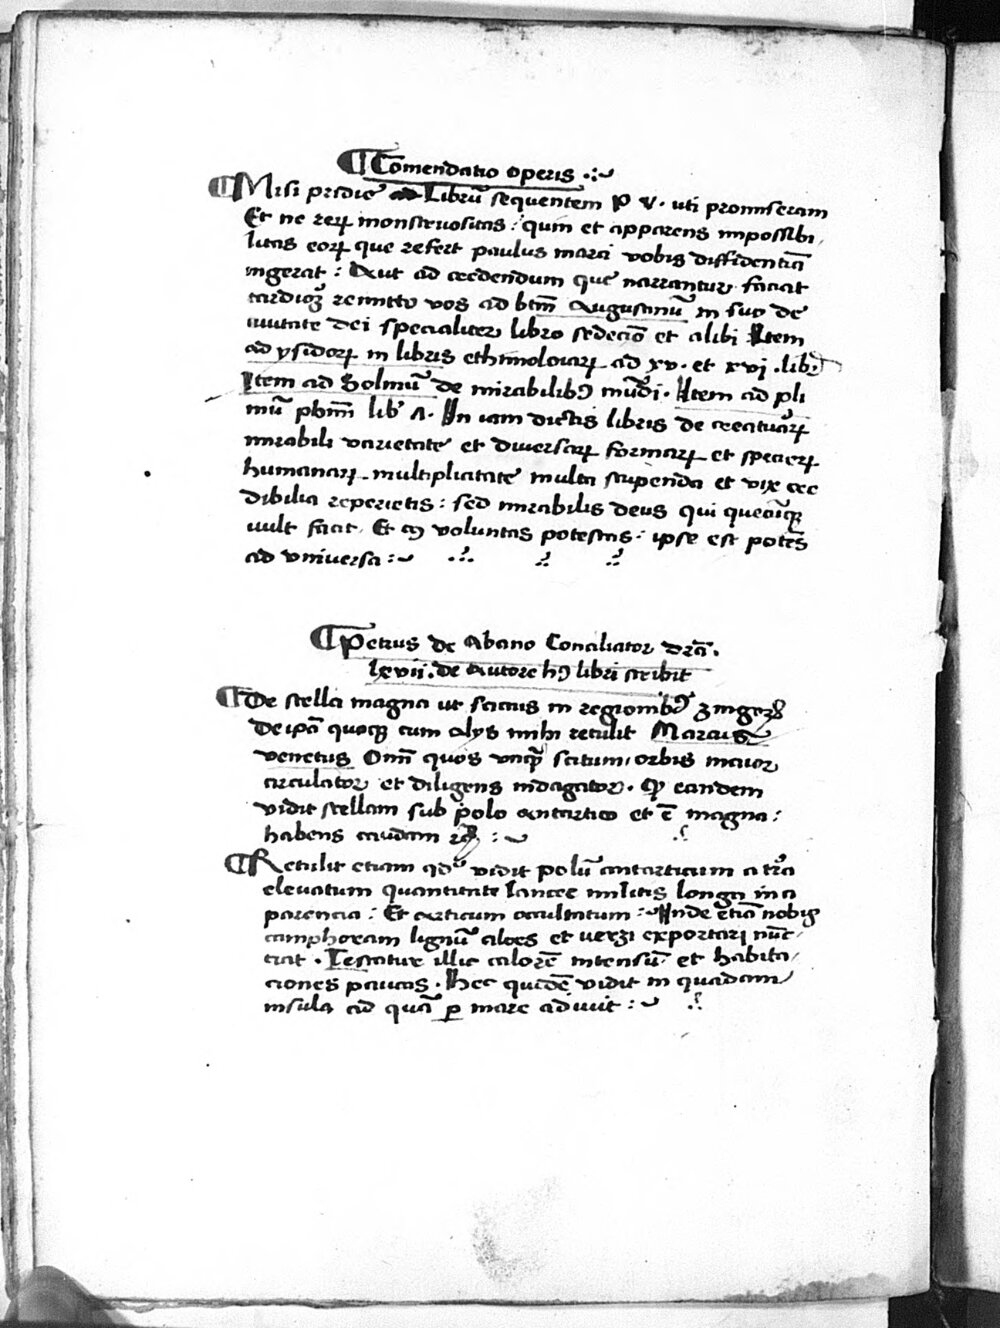 Comendatio operis
Misi pridie Librū sequentem P V. uti promiseram
Et ne reꝝ monstruositas: quin et apparens impossibi
litas eoꝝ que refert paulus marci vobis diffidentiā
ingerat: Aut ad credendum que narrantur faciat
tardioꝝ remitto vos ad btm̄ Augustinū in suo de
ciuitate dei specialiter libro sedecīo et alibi Item
ad ysidoꝝ in libris ethimoloiaꝝ ad xv. et xvi .lib
Item ad Solinū de mirabilibꝰ mūdi. Item ad pli
niū libꝰ In iam dictis libris de creatuāꝝ
mirabili varietate et diuersaꝝ formaꝝ et specieꝝ
humanaꝝ multiplicitate multa stupenda et vix cre
dibilia reperietis: sed mirabilis deus qui quecūqꝫ
uult facit. Et voluntas potestas: ipse est potēs
ad vniuersa:
Petrus de Abano Conciliator drā.
lxvii. de Autore hꝰ libri scribit
De stella magna ut sacus in regionibꝰ
De ip̄a quoqꝫ cum alys mihi retulit Marcus
venetus Om̄ quos vnqꝫ scitum orbis maior
circulator et diligens indagator. Qꝫ eandem
vidit stellam sub polo antartico et ē magna:
habens caudam
Retulit etiam qdꝰ vidit polū antarticum a trā
eleuatum quantitate lancee militis longa in a
parencia: Et articum occultatum: Inde etiā nobis
camphoram lignū aloes et verzi exportari nūc
ciat. Testatur illic calorē intensū et habita
ciones paucas. Hec quidē vidit in quadam
insula ad quā ꝑ mare adiuit: